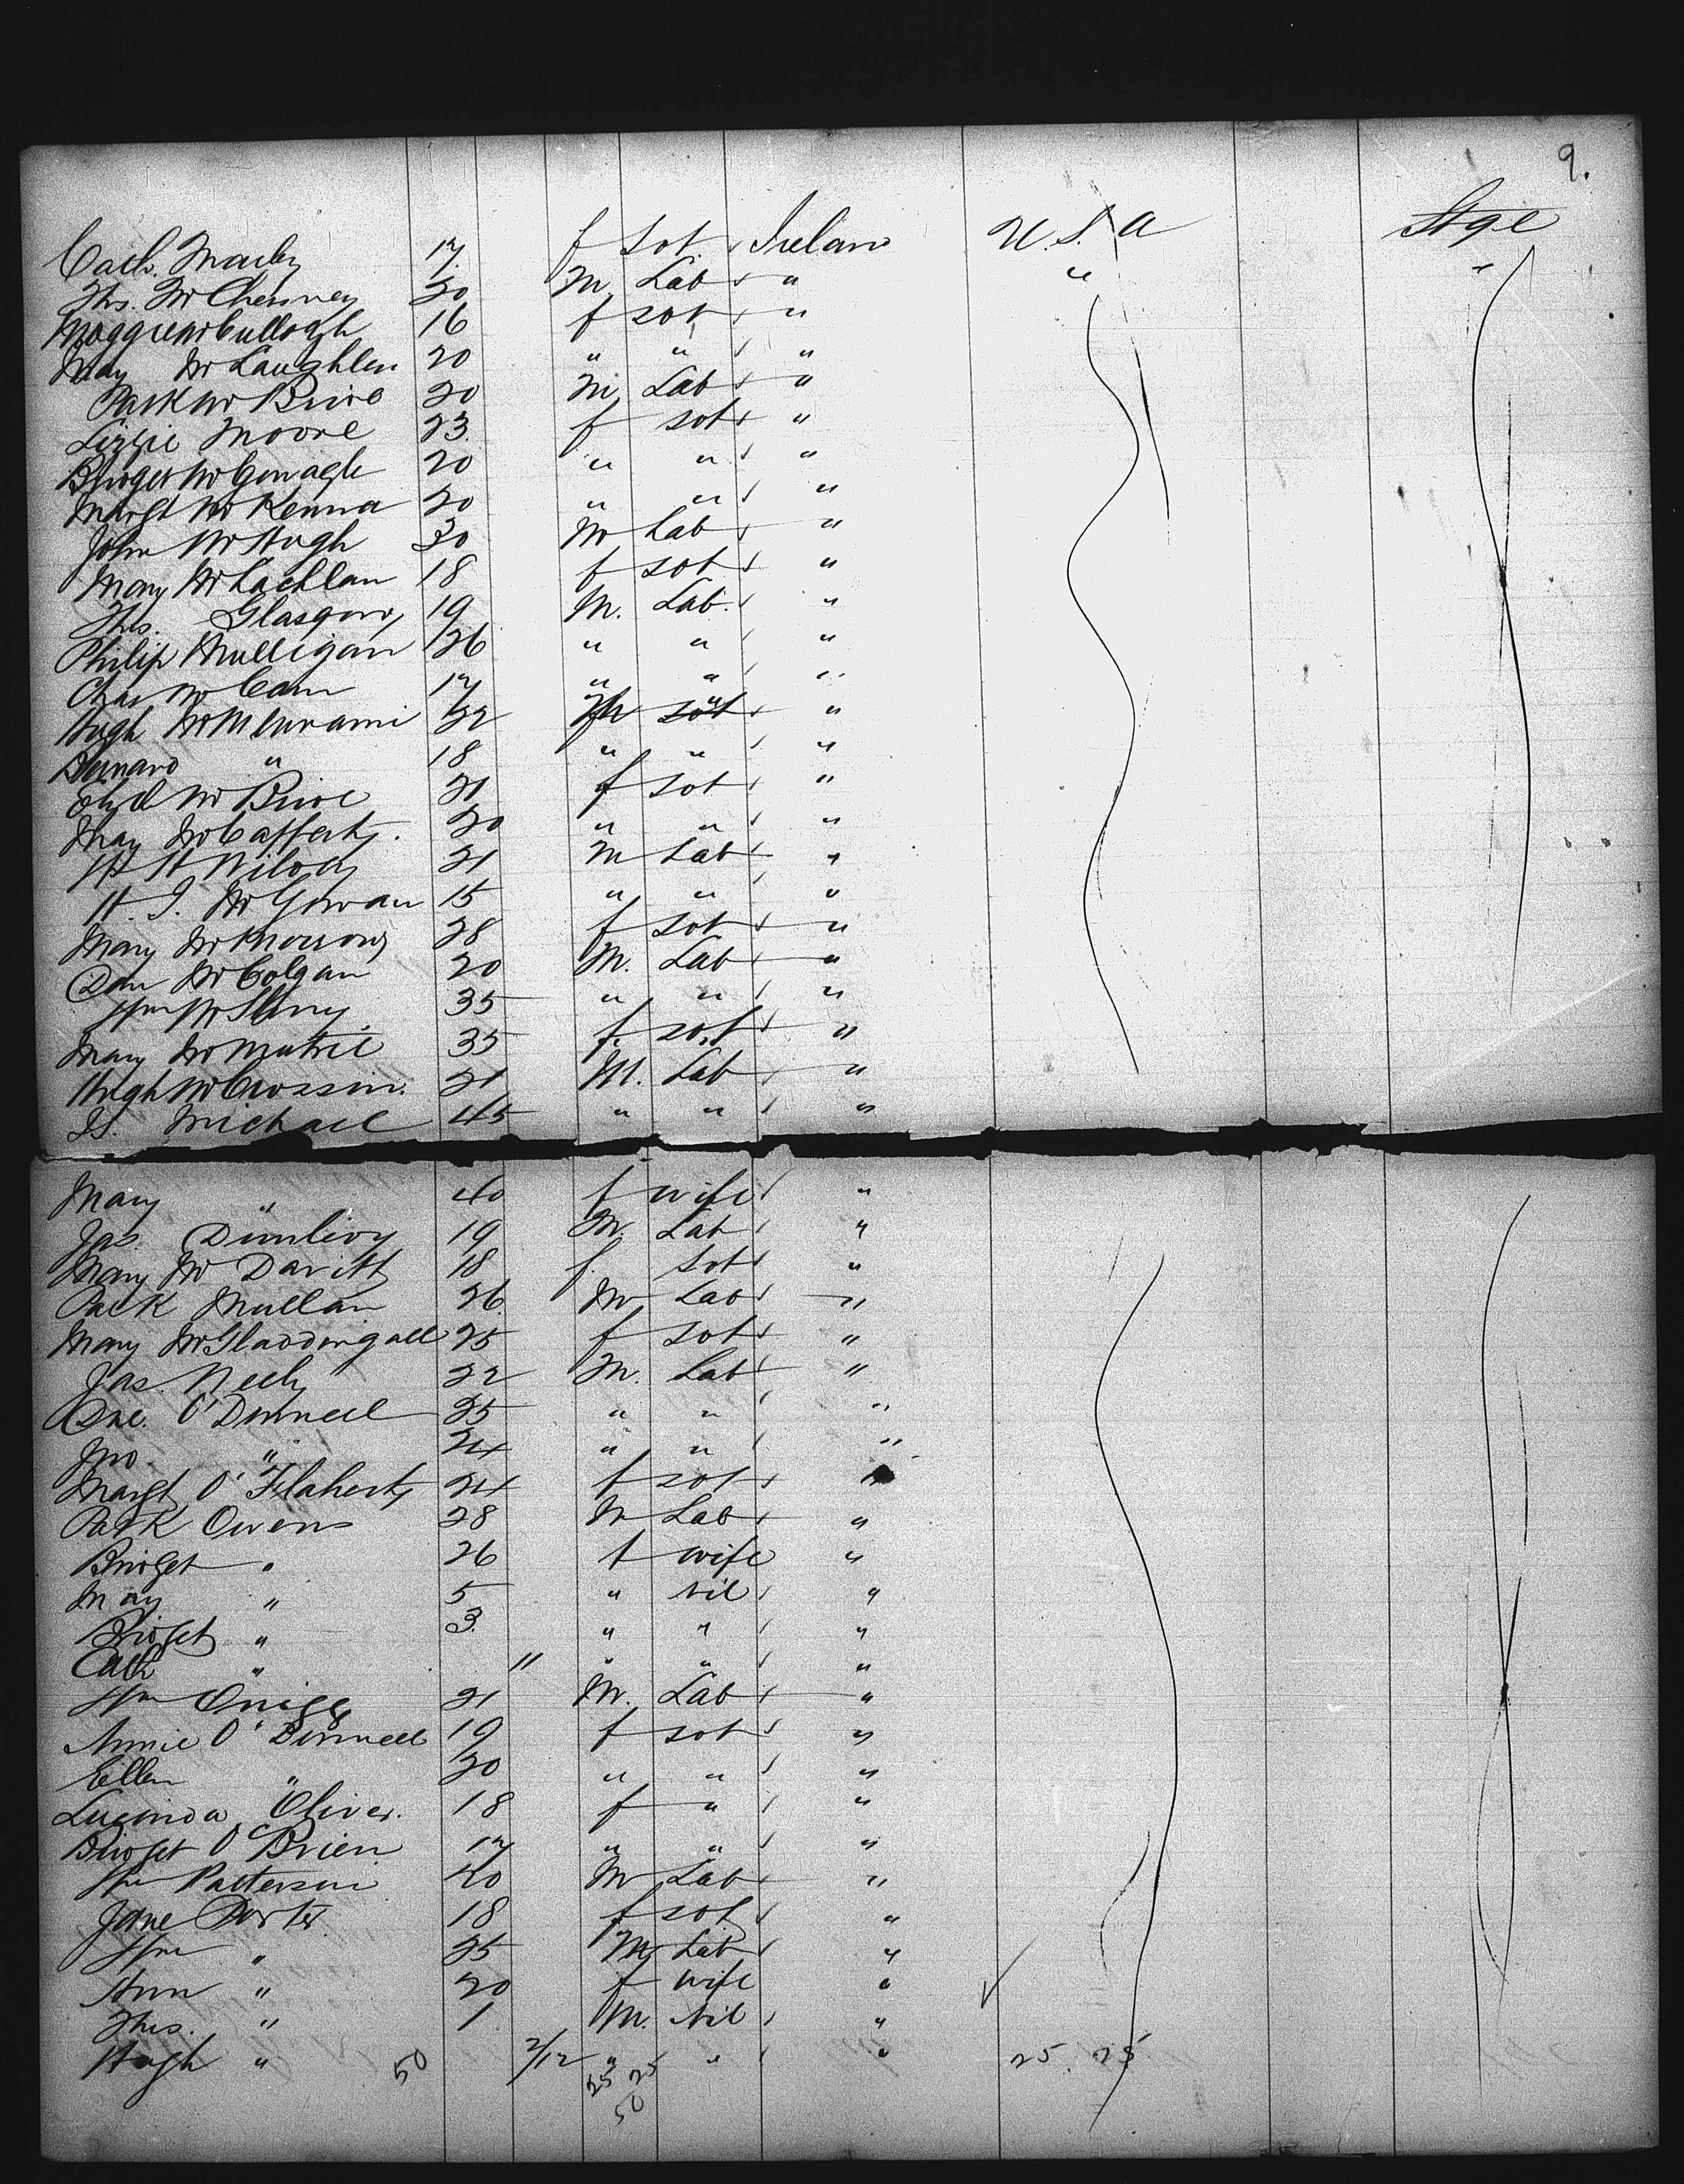 9.
Cath. 17 f Sot. Ireland U.S.A Stge
Ths. Mc Chesney 20 M Lab " " "
Maggie McCullogh 16 f sot "
May Mc Laughlen 20 " " "
Patk Mc Bride 20 M Lab "
Lizzie Moore 23 f sot "
Bridget Mc 20 " " "
Margt Mc Kenna 20 " " "
John Mc Hugh 30 M Lab "
Mary Mc Lachlan 18 f sot "
Ths. Glasgow 19 M. Lab. "
Philip Mulligan 26 " " "
Chas Mc Cann 17 " " "
Hugh Mc Menami 22 M "
Bernard " 18 " " "
Mc Bride 21 f sot "
May Mc Cafferty. 20 " " "
21 M Lab "
H. J. Mc Gowan 15 " " "
Mary Mc 28 f sot "
Dan Mc Colgan 20 M. Lab "
Wm 35 " " "
Mary Mc 35 f sot "
Hugh Mc Crossin. 21 M. Lab "
Michael 45 " " "
Mary " 40 f wife "
Jas. Dunlivy 19 M. Lab "
Mary Mc Davitt 18 f. Sot "
Patk Mullan 26 M Lab "
Mary Mc Gladdingall 25 f Sot "
Jas. Neely 22 M. Lab "
O'Donnell 25 " " "
Jno " 24 " " "
Margt O'Flaherty 24 f sot "
Patk Owens 28 M Lab "
Bridget " 26 f wife "
May " 5 " Nil "
Bridget " 3. " " "
Cath " 11 " " "
Wm 21 M. Lab "
Annie O'Donnell 19 f sot "
Ellen " 20 " " "
Lucinda Oliver. 18 f " "
Bridget O'Brien 17 " " "
Wm Patterson 40 M Lab "
Jane Porter 18 f sot "
Wm " 25 M Lab "
Ann " 20 f wife "
Ths. " 1 M. Nil "
Hugh " 50 2/12 " " " 25. 25
25 25
50